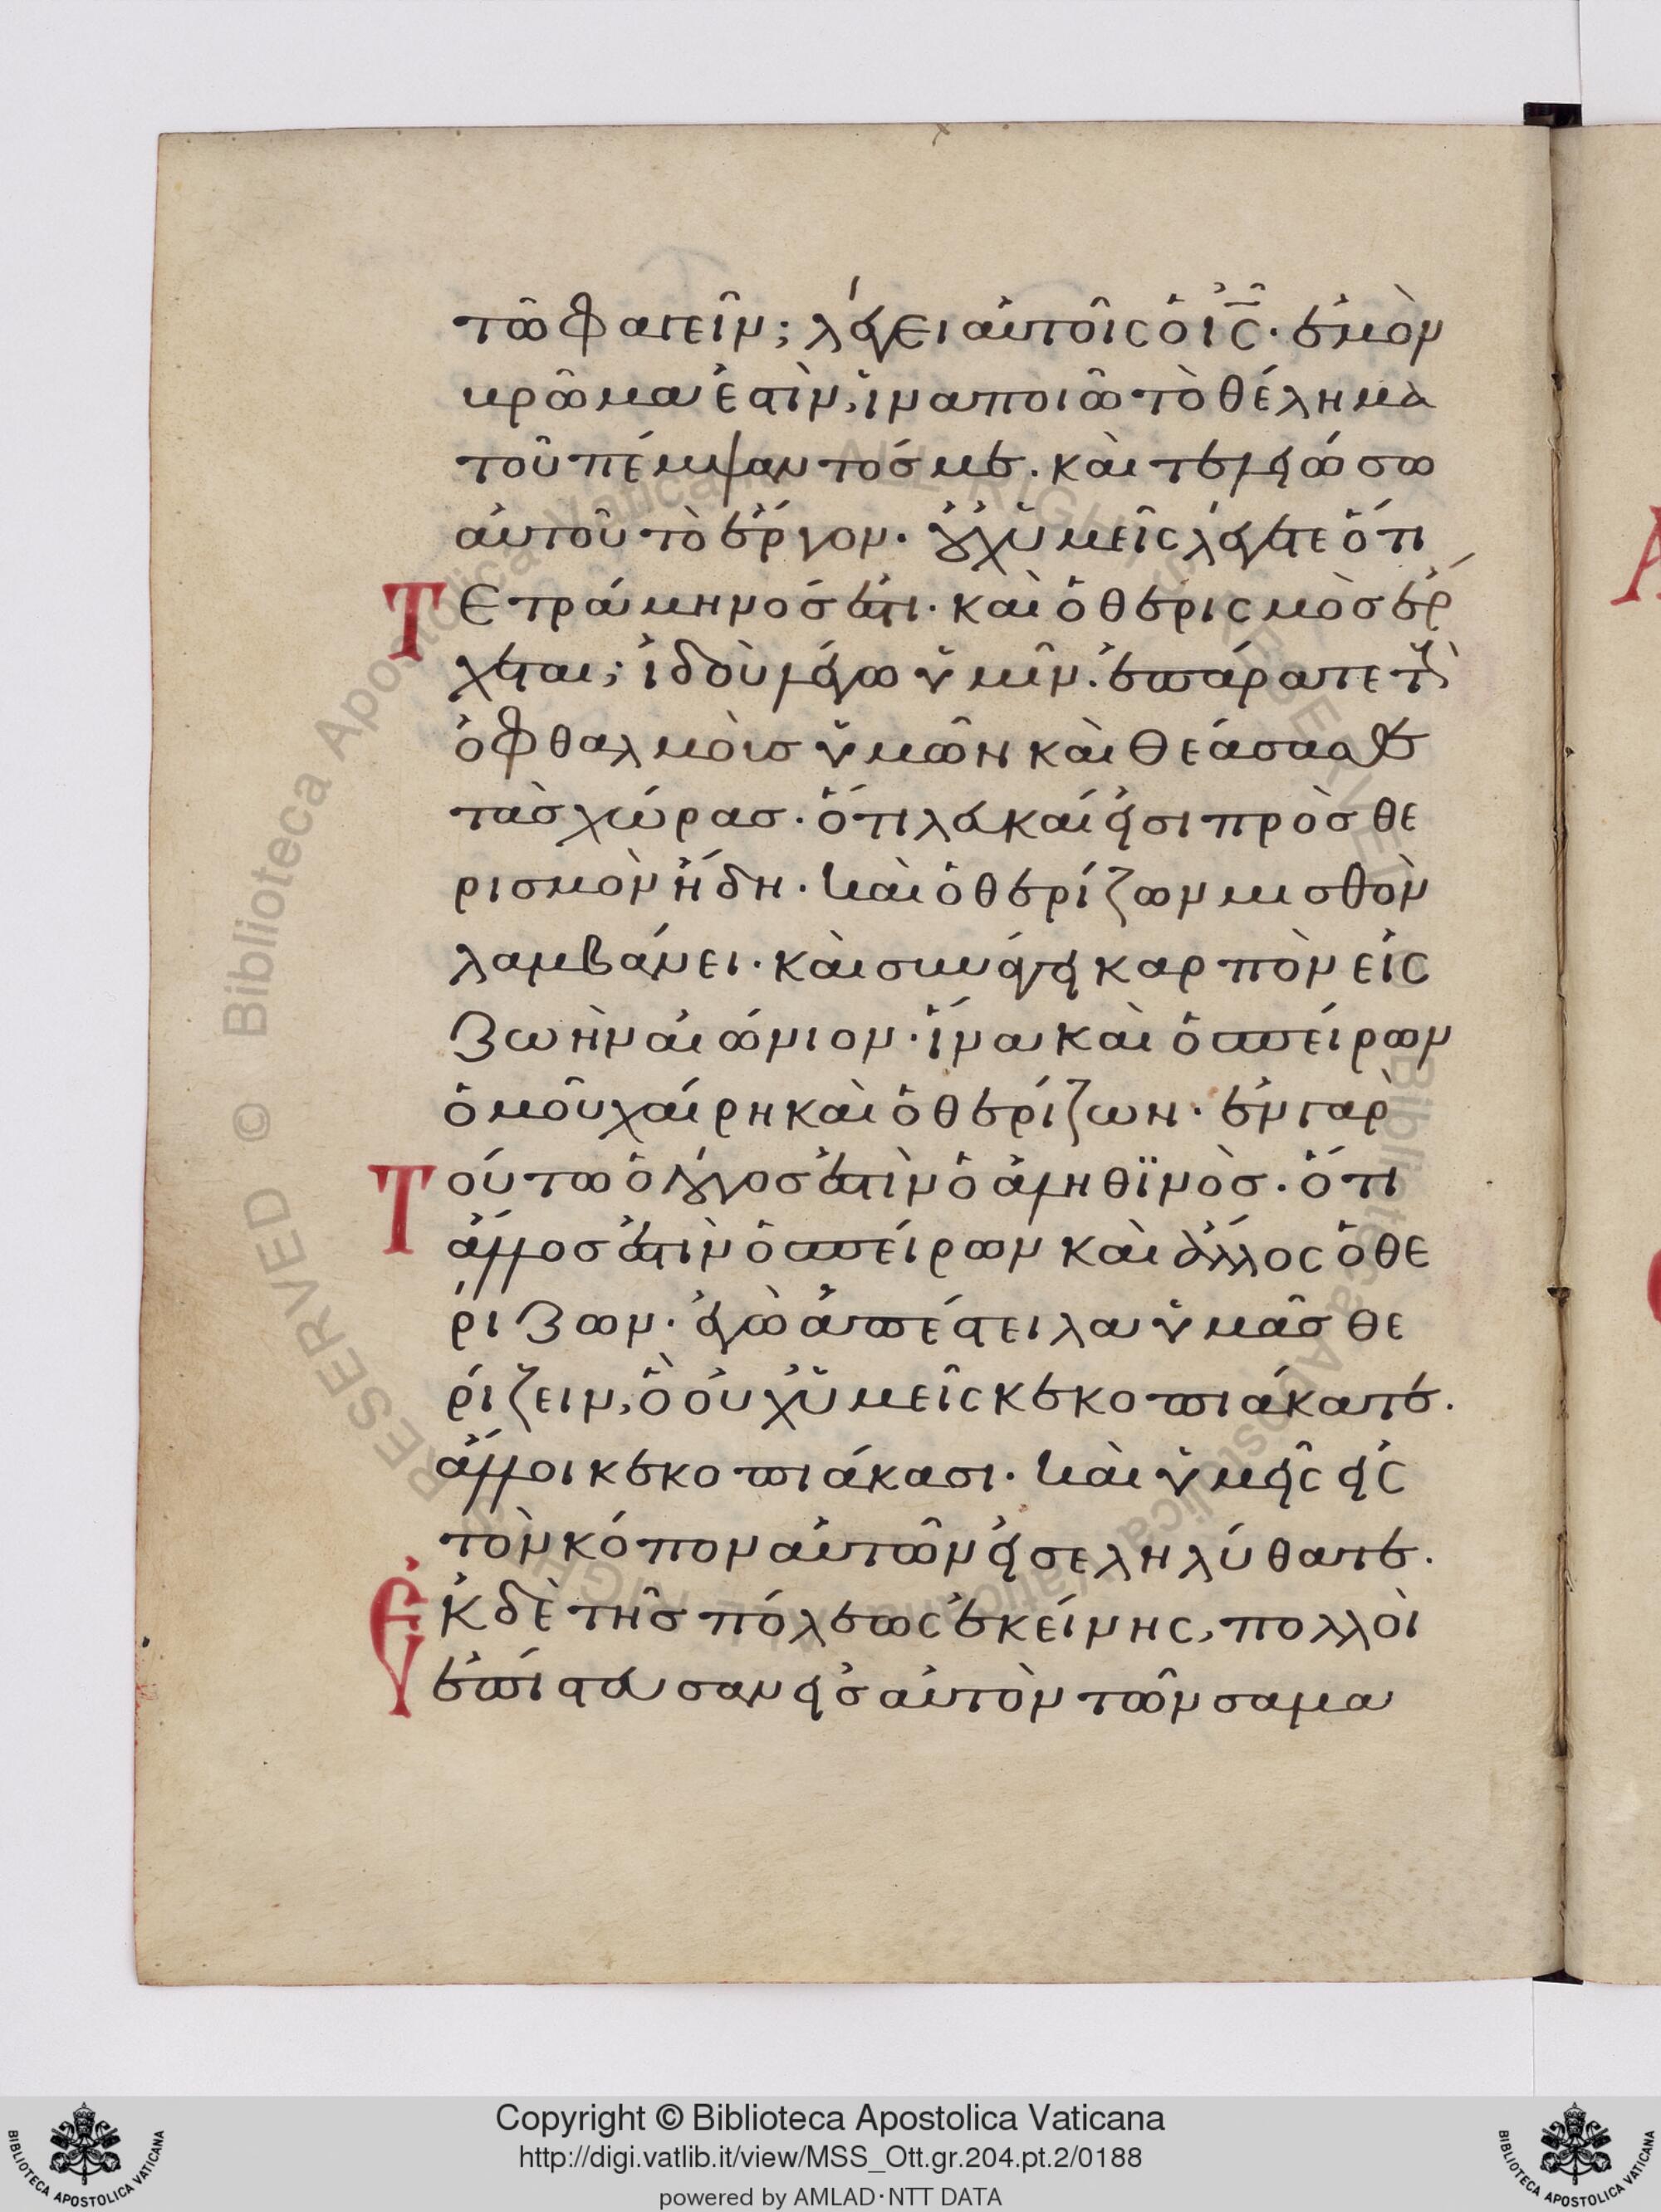 τῶ φαγεῖν; λέγει αὐτοῖς ὁ ις̅. ἐμὸν
βρῶμα ἐστὶν, ἵνα ποιῶ τὸ θέλημα
τοῦ πέμψαντός με. καὶ τελειώσω
αὐτοῦ τὸ ἔργον. οὐχ ὑμεῖς λέγετε ὅτι
Τετράμηνός ἐστι. καὶ ὁ θερισμὸς ἔρ
χεται; ἰδοὺ λέγω ὑμῖν. ἐπάρατε τοὺς
ὀφθαλμοὺς ὑμῶν καὶ θεάσασθε
τὰς χώρας. ὅτι λευκαί εἰσι πρὸς θε
ρισμὸν ἤδη. καὶ ὁ θερίζων μισθὸν
λαμβάνει. καὶ συνάγει καρπὸν εἰς
ζωὴν αἰώνιον. ἵνα καὶ ὁ σπείρων
ὁμοῦ χαίρη καὶ ὁ θερίζων. ἐν γὰρ
Τούτω ὁ λόγος ἐστὶν ὁ ἀληθϊνὸς. ὅτι
ἄλλος ἐστὶν ὁ σπείρων καὶ ἄλλος ὁ θε
ρίζων. ἐγὼ ἀπέστειλα ὑμᾶς θε
ρίζειν, ὃ οὐχ ὑμεῖς κεκοπιάκατε.
ἄλλοι κεκοπιάκασι. καὶ ὑμεῖς εἰς
τὸν κόπον αὐτῶν εἰσεληλύθατε.
Ἐκ δὲ τῆς πόλεως ἐκείνης, πολλοὶ
ἐπίστευσαν εἰς αὐτὸν τῶν σαμα
Copyright © Biblioteca Apostolica Vaticana
http://digi.vatlib.it/view/MSS_Ott.gr.204.pt.2/0188
powered by AMLAD·NTT DATA
BIBLIOTECA APOSTOLICA VATICANA
BIBLIOTECA APOSTOLICA VATICANA